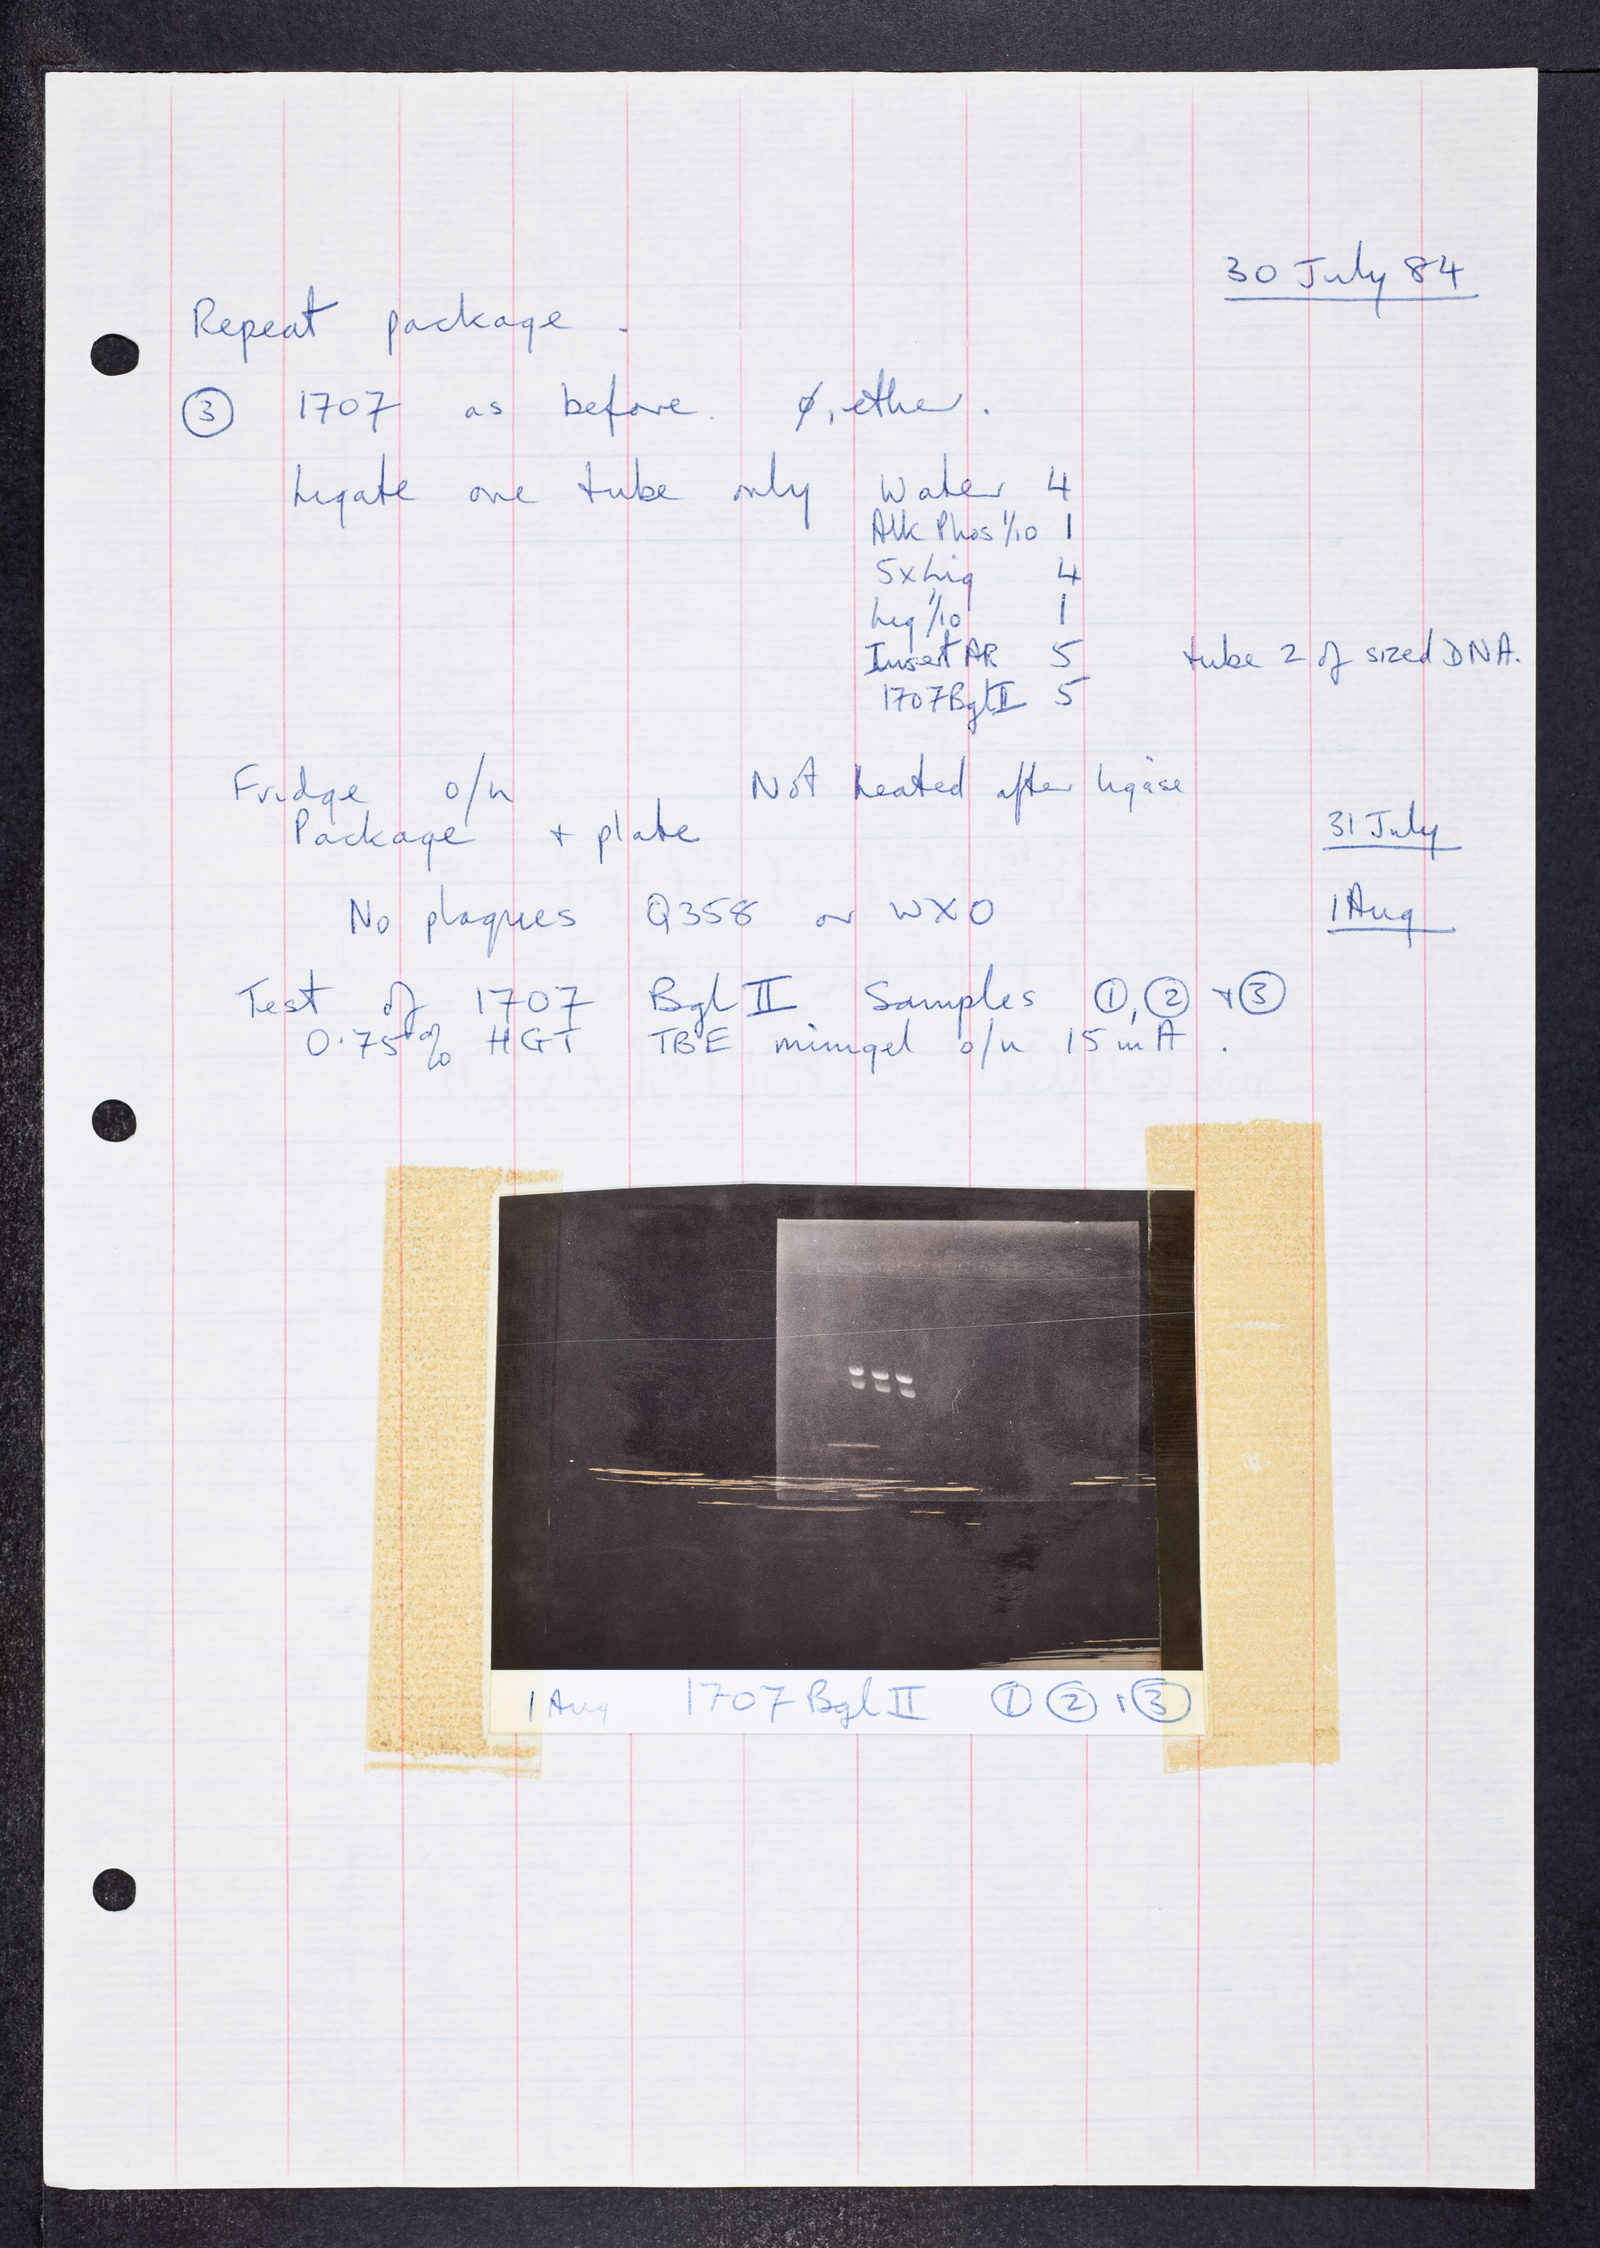 30 July 84
Repeat package.
③ 1707 as before. ø, ether.
Ligate one tube only Water 4
Alk Phos 1/10 1
5xLig 4
Lig 1/10 1
Insert AR 5 tube 2 of sized DNA.
1707 Bgl II 5
Fridge o/n Not heated after ligase
Package + plate 31 July
No plaques Q358 or WX0 1 Aug
Test of 1707 Bgl II Samples ①, ② + ③
0.75% HGT TBE minigel o/n 15 mA.
1 Aug 1707 Bgl II ① ② + ③